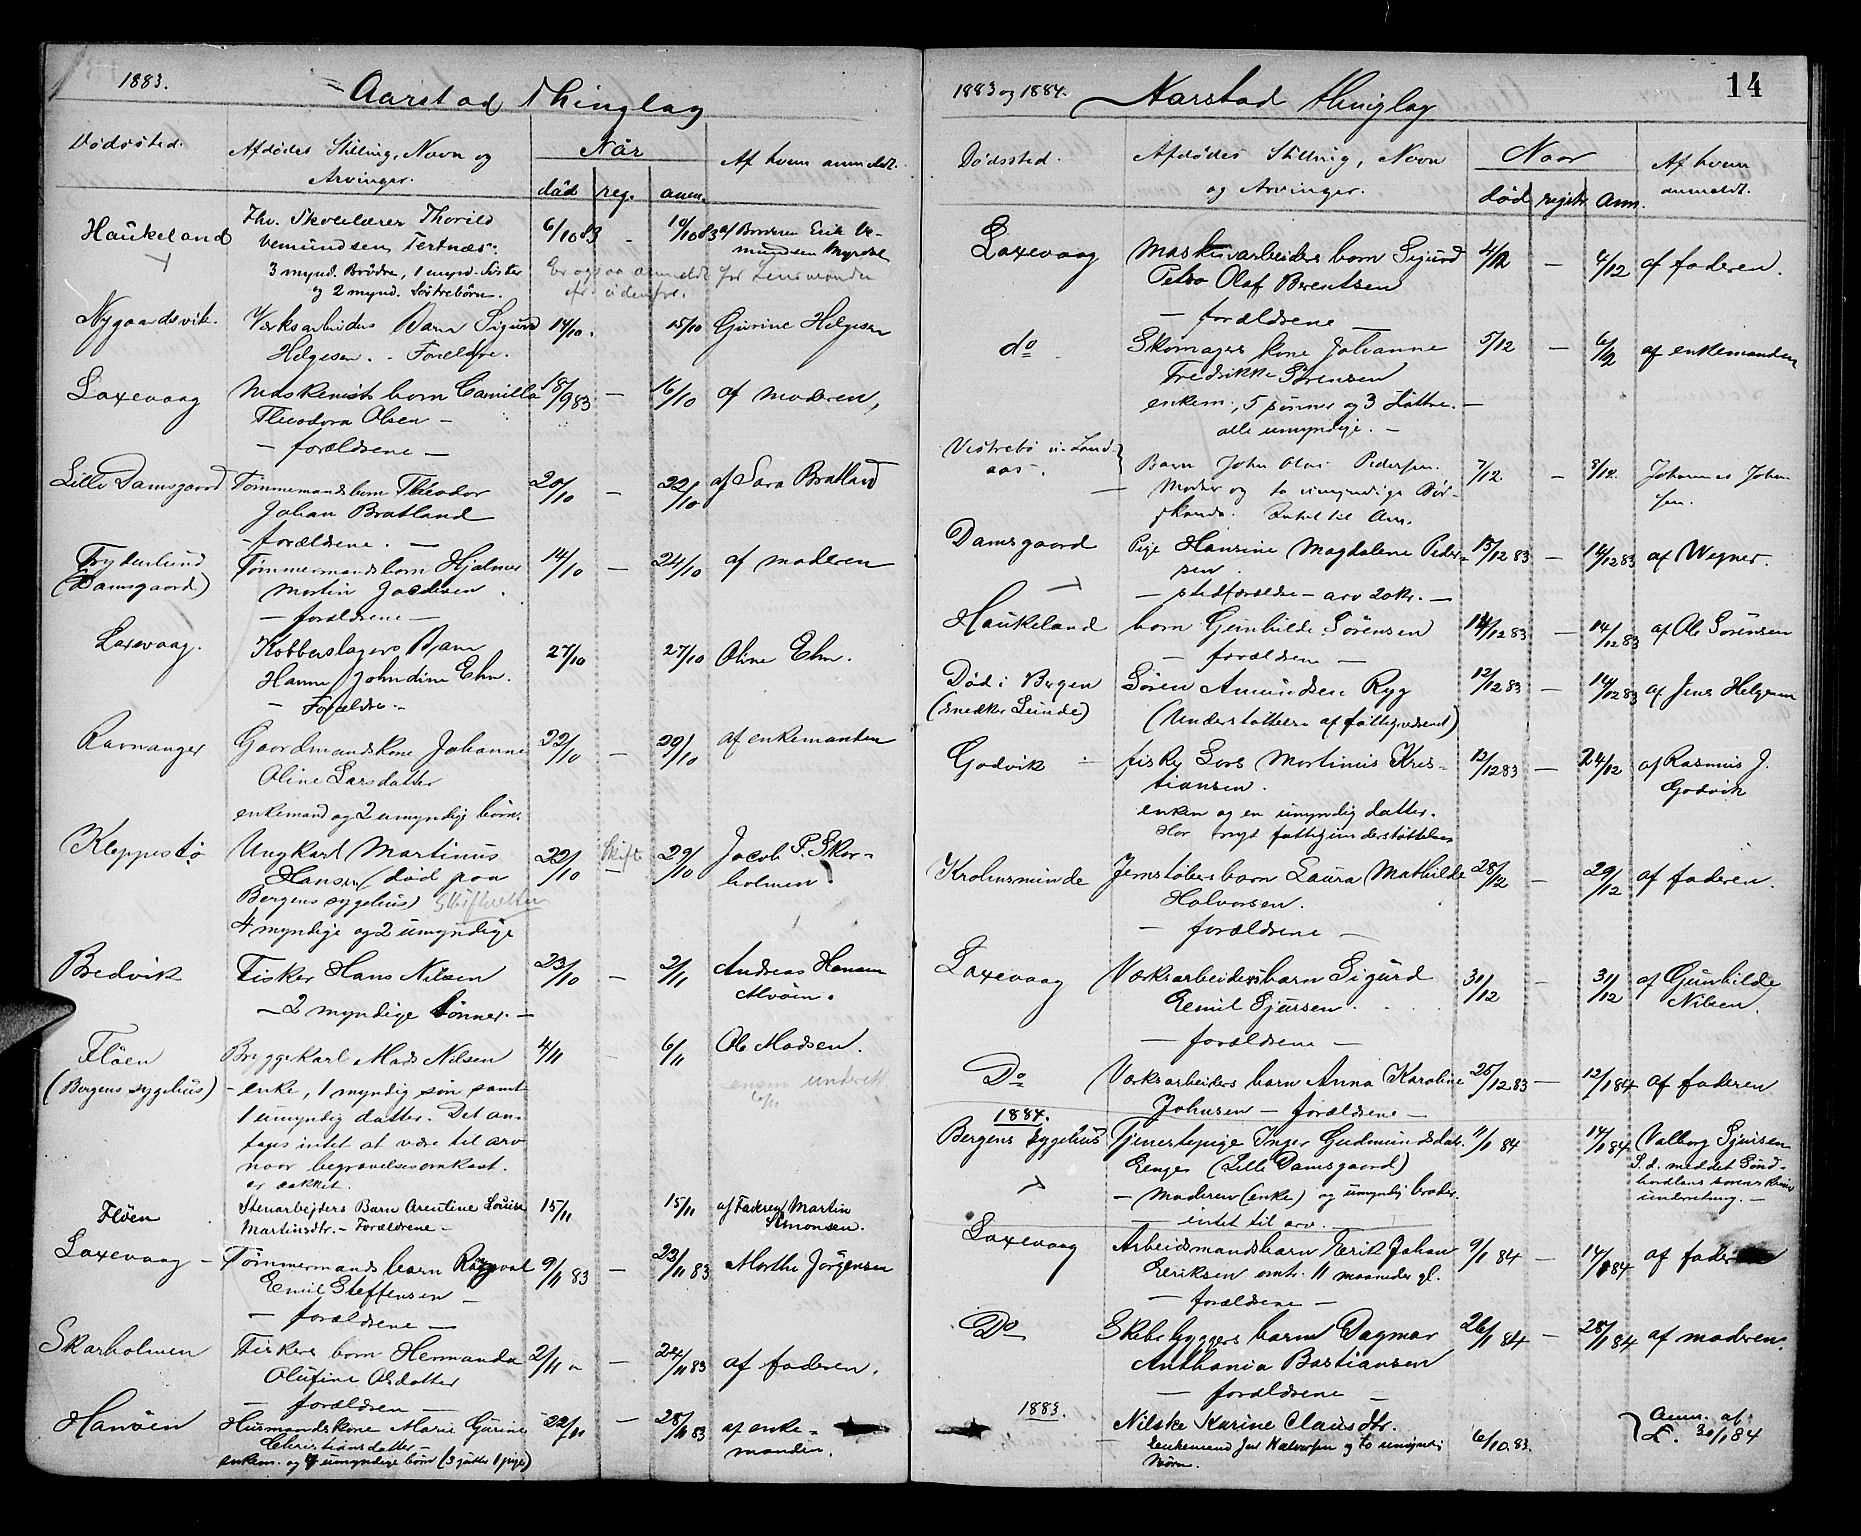 1883.
Aarstad Thinglag
Dødssted.
Afdødes Stilling, Navn og
Arvinger.
Når
Af hvem anmeldt.
død reg. anm.
Haukeland
Fhv. Skolelærer Thorild
Vemundsen Tertnæs:
3 mynd. Brødre, 1 mynd. Søster
og 2 mynd. Søstrebørn.
6/10 83 - 10/10 83
af Broderen Erik Ve-
mundsen Myrdal
Er ogsaa anmeldt for Lensmanden
Nygaardsvik.
Værksarbeiders Barn Sigurd
Helgesen. - Forældre.
14/10. 15/10 Gurine Helgesen
Laxevaag
Maskinists barn Camilla
Theodora Olsen -
- forældrene -
18/9 83 - 16/10 af moderen,
Lille Damsgaard
Tømmermandsbarn Theodor
Johan Bratland
- forældrene. -
20/10 - 22/10 af Sara Bratland
Frydenlund
(Damsgaard)
Tømmermandsbarn Hjalmar
Martin Jacobsen.
- forældrene -
14/10 - 24/10 af moderen
Laxevaag.
Kobberslagers Barn
Hanne Johndine Ehn.
- Forældre. -
27/10 27/10 Oline Ehn.
Ravnanger
Gaardmandskone Johanne
Oline Larsdatter
enkemand og 2 umyndige børn.
22/10 - 29/10 af enkemanden
Kleppestø
Ungkarl Martinus
Hansen (død paa
Bergens sygehus) Skifteretten
4 myndige og 2 umyndige
22/10 Skifte 29/10
Jacob P. Skar-
holmen.
Bredvik
Fisker Hans Nilsen
- 2 myndige sønner. -
23/10 - 2/11
Andreas Hansen
Alvøen.
Fløen
(Bergens sygehus)
Bryggekarl Mads Nilsen
- enke, 1 myndig søn samt
1 umyndig datter. Det an-
tages intet at være til arv
naar begravelsesomkost.
er dækket.
4/11 - 6/11 Ole Madsen.
Fløen
Stenarbejders Barn Arentine Lovise
Martinsdtr. - Forældrene -
15/11 15/11
af Faderen Martin
Simonsen.
Laxevaag -
Tømmermands barn Ragnvat
Emil Steffensen -
- forældrene -
9/11 83 - 23/11 83 Marthe Jørgensen
Skarholmen
Fiskers barn Hermanda
Olufine Olsdatter
- forældren -
2/11 - 24/11 83 af faderen.
Hanøen
Husmandskone Marie Gurine
Christiansdatter -
enkem. og 4 umyndige børn (3 gutter 1 pige)
22/11 - 28/11 83
af enke-
manden.
1883 og 1884.
Aarstad thinglag
14
Dødssted.
Afdødes Stilling, Navn
og Arvinger.
Naar
Af hvem
anmeldt.
død registr. Anm.
Laxevaag
Maskinarbeiders barn Sigurd
Petro Olaf Berentsen
- forældrene -
4/12 - 4/12 af faderen.
do
Skomagers kone Johanne
Fredrikke Sörensen
enkem., 5 sønner og 3 Døttre. -
alle umyndige. -
5/12 - 6/12 af enkemanden
Barn John Olai Pedersen.
Moder og to umyndige Sør-
skende. Intet til Arv.
7/12 - 8/12.
Johannes Johan-
sen.
Damsgaard
Pige Hansine Magdalene Peder-
sen
- stedforældre - arv 20 kr. -
13/12 83 - 14/12 83 af Wegner.
Haukeland
barn Gunhilde Sørensen
- forældrene -
14/12 83 - 14/12 83 af Ole Sørensen
Død i Bergen
(snedker Lunde)
Søren Amundsen Ryg
(Understøttelse af fattigvæsenet)
12/12 83 - 14/12 83 af Jens Helgesen
Godvik
fisker Lars Martinus Kris-
tiansen.
enken og en umyndig datter.
Har nydt fattigunderstøttelse
12/12 83 - 24/12
af Rasmus J.
Godvik
Krohnsminde
Jernstøbers barn Laura Mathilde
Halvorsen.
- forældrene -
28/12 - 29/12 af faderen.
Laxevaag
Værksarbeiders barn Sigurd
Emil Sjursen.
- forældrene -
31/12 - 31/12
af Gunhilde
Nilsen.
Do
Værksarbeiders barn Anna Karoline
Johnsen - forældrene -
25/12 83 - 12/1 84 af faderen
1884.
Bergens sygehus
Tjenestepige Inger Gudmundsdatr.
Eenges (Lille Damsgaard)
- Moderen (enke) og umyndig broder.
- intet til arv. -
11/1 84 14/1 84
Valborg Sjursen
S. d. meddelt Sønd-
hordlens sorenskriver
underretning. -
Laxevaag
Arbeidsmandsbarn Erik Johan
Eriksen omtr. 11 maaneder gl.
- forældrene -
9/1 84 - 14/1 84 af fader
Do
Skibsbyggers barn Dagmar
Anthonia Bastiansen
- forældrene -
26/1 84 - 28/1 84 af moderen.
1883.
Nilske Karine Clausdtr.
Enkemand Jens Halvorsen og to umyndi:
Børn.
6/10. 83.
Anm. af
L. 30/1 84